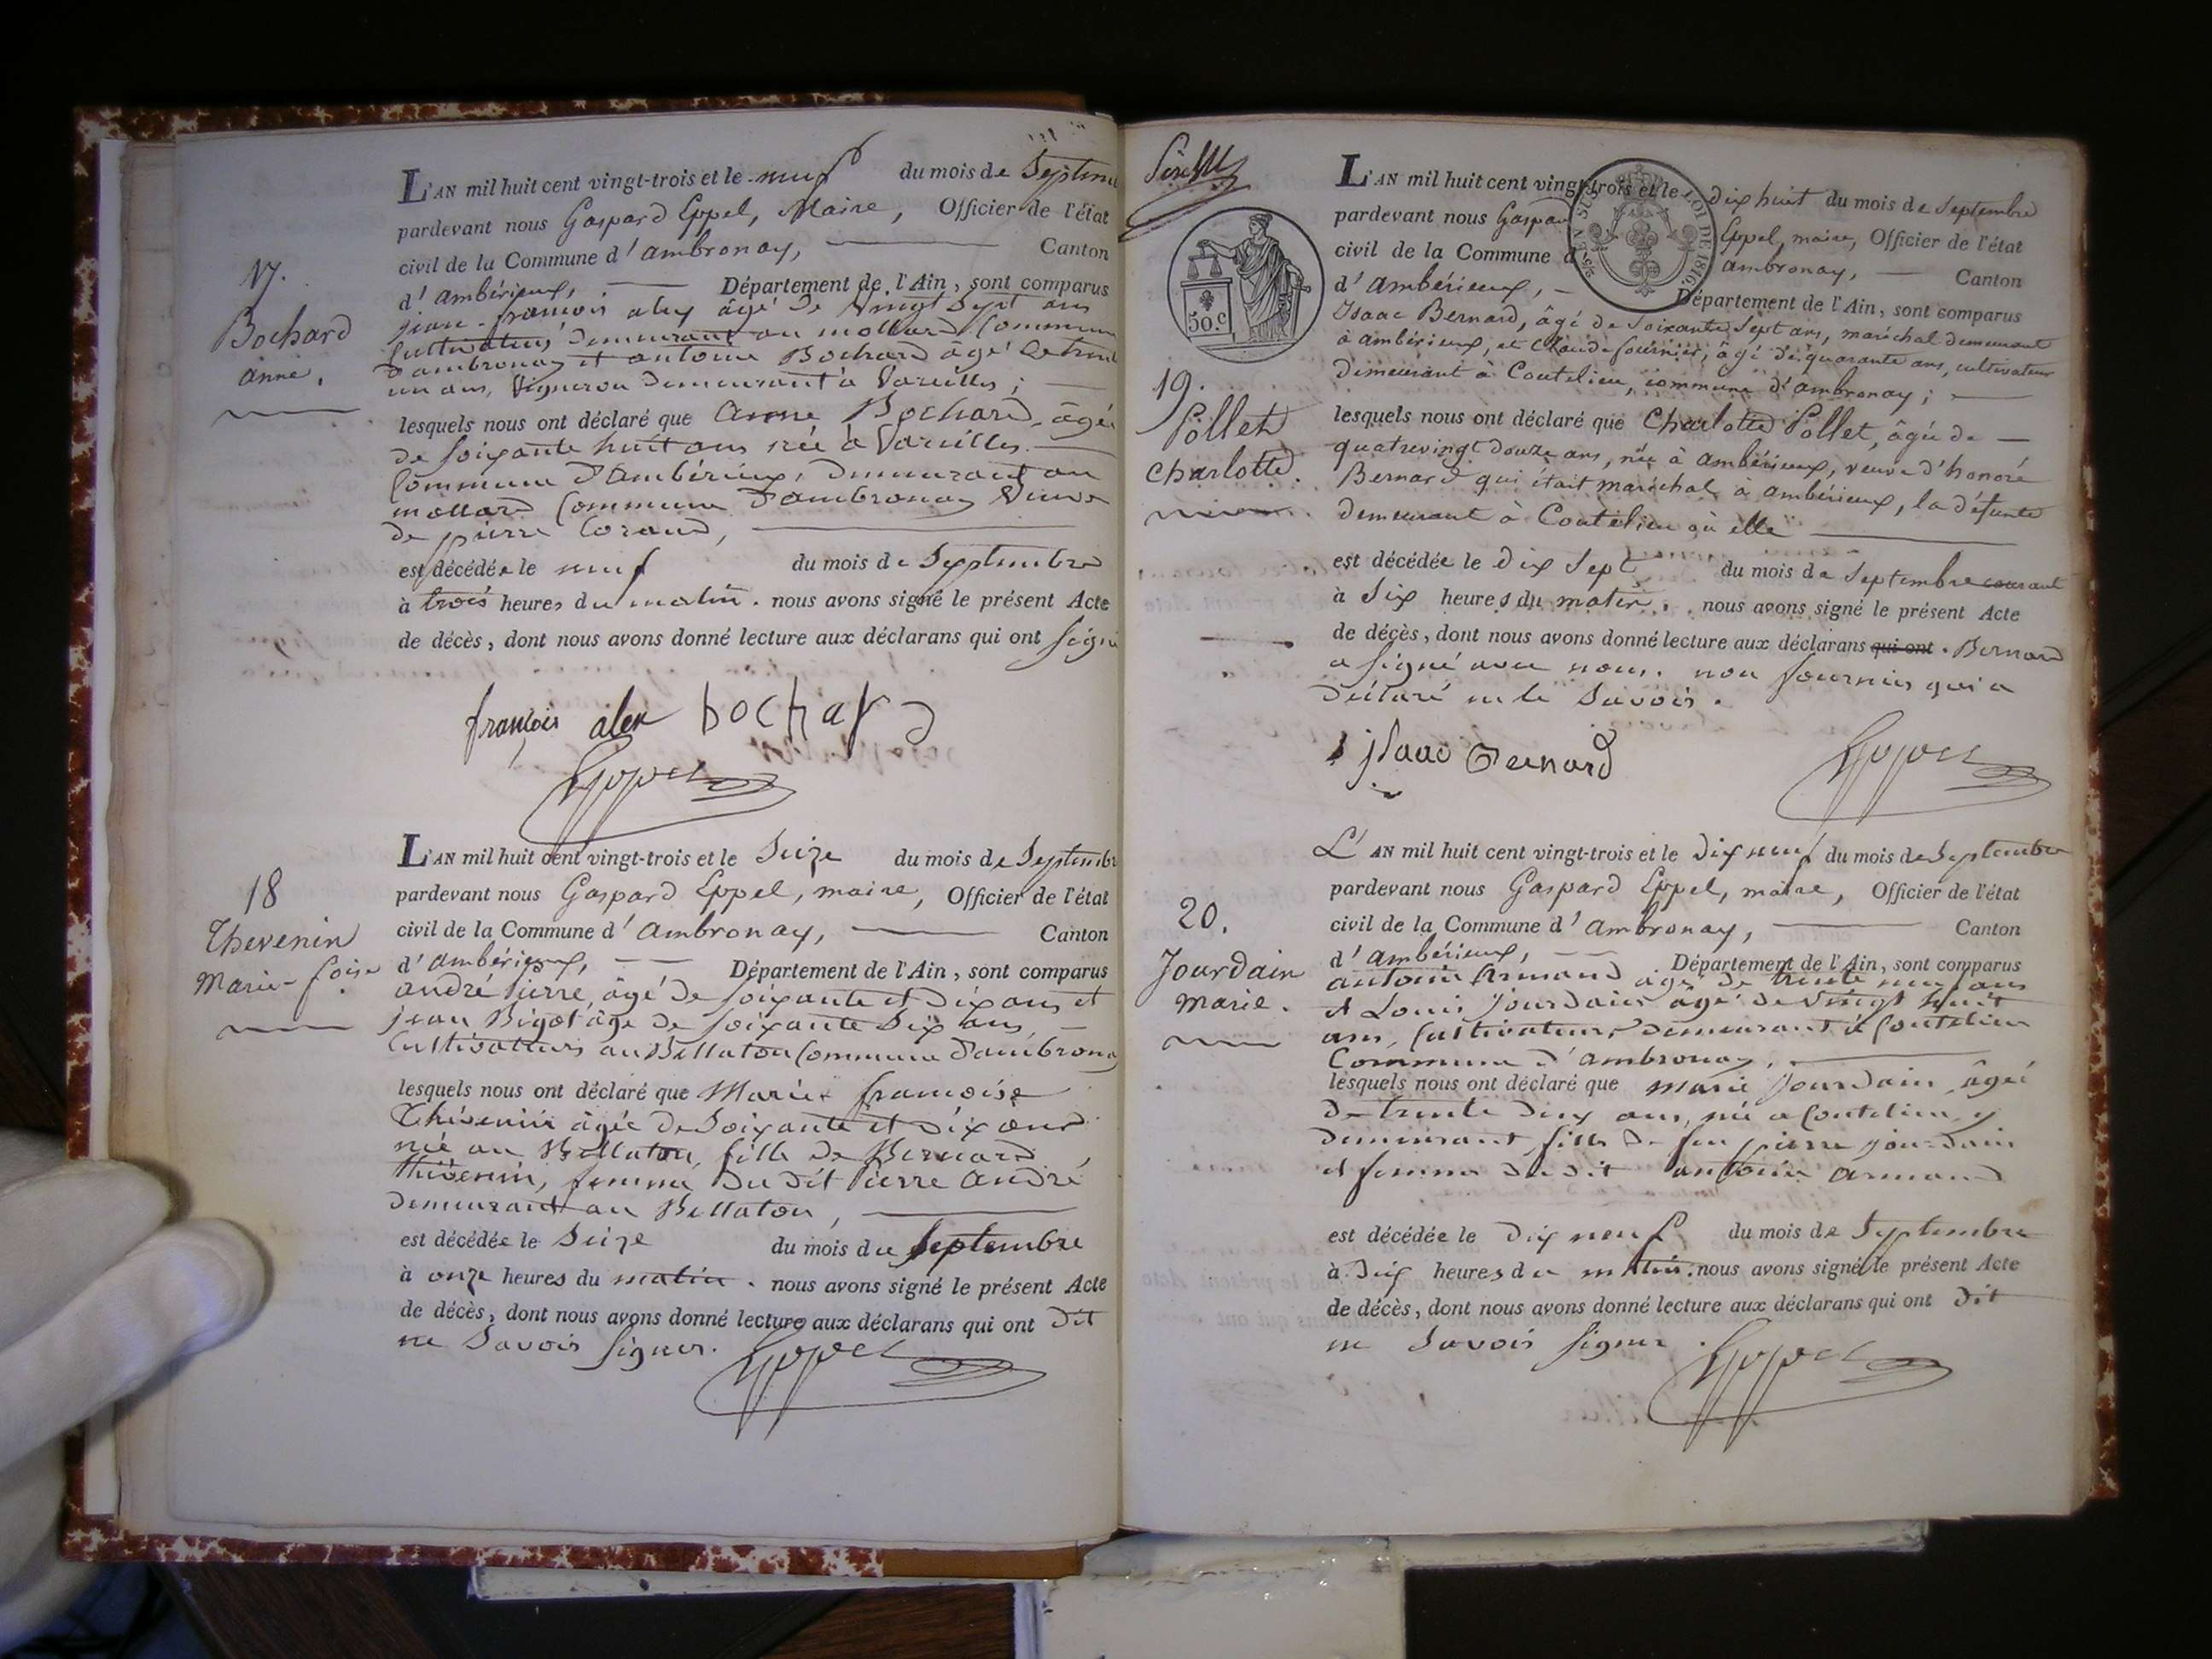 L'AN mil huit cent vingt-trois et le neuf du mois de Septem
pardevant nous Gaspard Eppel, Maire, Officier de l'état
civil de la Commune d'ambronay, Canton
d'ambérieux, Département de l'Ain, sont comparus
17.
Bochard
anne.
jean-francois alex âgé de vingt sept ans
cultivateur demeurant au mollard Commune
d'ambronay et antoine Bochard âgé de trente
un ans, Vigneron demeurant à Vareilles;
lesquels nous ont déclaré que anne Bochard, âgée
de soixante huit ans née à Vareilles
Commune d'ambérieux, demeurant au
mollard Commune d'ambronay Veuve
de pierre Corand,
est décédée le neuf du mois de Septembre
à trois heures du matin. nous avons signé le présent Acte
de décès, dont nous avons donné lecture aux déclarans qui ont signé
françois alex bochard
Eppel
L'AN mil huit cent vingt-trois et le Seize du mois de Septembr
pardevant nous Gaspard Eppel, maire, Officier de l'état
civil de la Commune d'ambronay, Canton
d'ambérieux, Département de l'Ain, sont comparus
18
Thevenin
Marie-foise
andré pierre, âgé de soixante et dix ans et
jean Bigot âgé de soixante Six ans,
Cultivateurs au Bellaton Commune d'ambronay
lesquels nous ont déclaré que Marie francoise
Thévenin âgée de Soixante et dix ans
née au Bellaton, fille de Bernard
thévenin, femme du dit Pierre andré
demeurant au Bellaton,
est décédée le Seize du mois de Septembre
à onze heures du matin. nous avons signé le présent Acte
de décès, dont nous avons donné lecture aux déclarans qui ont dit
ne Savoir signer.
Eppel
L'AN mil huit cent vingt-trois et le dix huit du mois de Septembre
pardevant nous Gaspard Eppel, maire, Officier de l'état
civil de la Commune d'ambronay, Canton
d'ambérieux, Département de l'Ain, sont comparus
LOI DE 1816
50.c
19.
Pollet
Charlotte.
Isaac Bernard, âgé de soixante sept ans, maréchal demeurant
à ambérieux, et Claude fournier, âgé de quarante ans, cultivateur
demeurant à Coutelieu, commune d'ambronay;
lesquels nous ont déclaré que Charlotte Pollet, âgée de
quatrevingt douze ans, née à ambérieux, veuve d'honoré
Bernard qui était maréchal à ambérieux, la défunte
demeurant à Coutelieu où elle
est décédée le dix sept du mois de septembre courant
à six heures du matin. nous avons signé le présent Acte
de décès, dont nous avons donné lecture aux déclarans qui ont. Bernard
a signé avec nous. non fournier qui a
déclaré ne le Savoir.
isaac Bernard
Eppel
L'AN mil huit cent vingt-trois et le dix neuf du mois de Septembre
pardevant nous Gaspard Eppel, maire, Officier de l'état
civil de la Commune d'ambronay, Canton
d'ambérieux, Département de l'Ain, sont comparus
20.
Jourdain
marie.
antoine Armand âgé de trente neuf ans
et Louis Jourdain âgé de vingt huit
ans, Cultivateurs demeurant à Coutelieu
Commune d'ambronay.
lesquels nous ont déclaré que marie Jourdain, âgée
de trente deux ans, née a Coutelieu y
demeurant fille de feu pierre jourdain
et femme du dit antoine armand
est décédée le dix neuf du mois de Septembre
à dix heures du matin. nous avons signé le présent Acte
de décès, dont nous avons donné lecture aux déclarans qui ont dit
ne Savoir signer.
Eppel